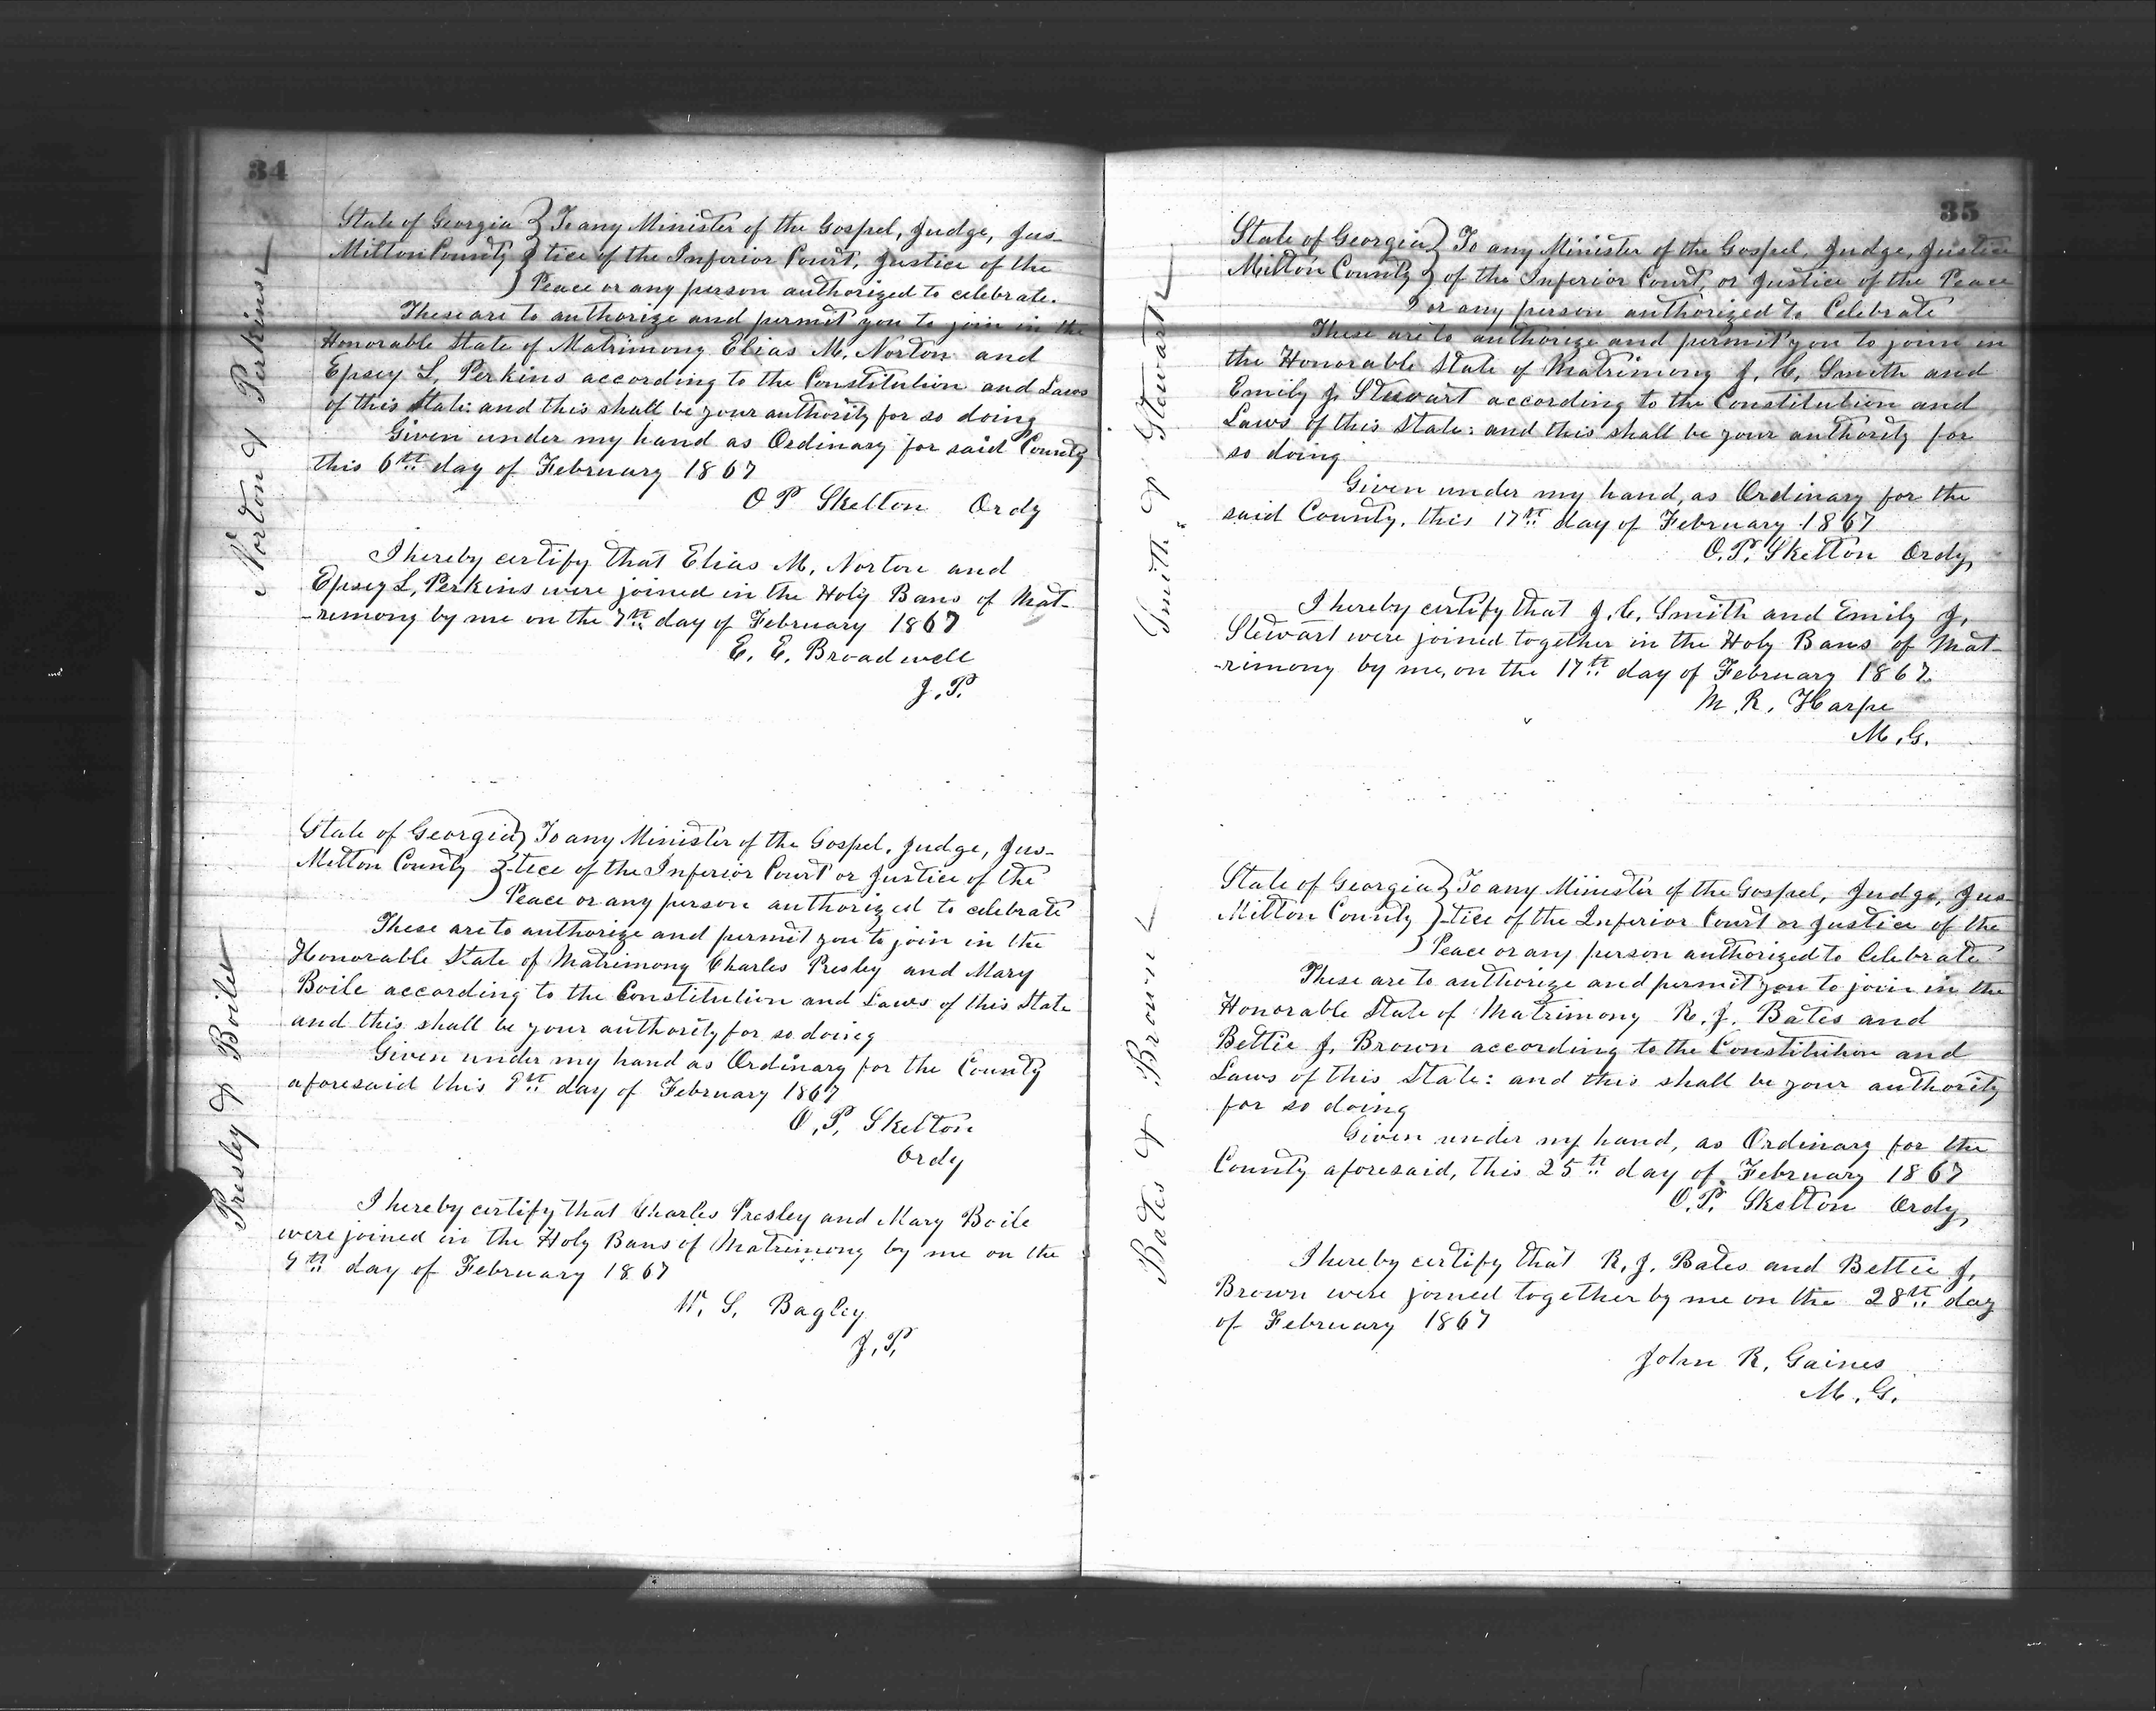 34
Norton & Perkins
State of Georgia } To any Minister of the Gospel, Judge, Jus-
Milton County } tice of the Inferior Court, Justice of the
} Peace or any person authorized to celebrate.
These are to authorize and permit you to join in the
Honorable State of Matrimony Elias M. Norton and
Epsey L. Perkins according to the Constitution and Laws
of this State: and this shall be your authority for so doing
Given under my hand as Ordinary for said County
this 6th day of February 1867
O P Skelton Ordy
I hereby certify that Elias M. Norton and
Epsey L. Perkins were joined in the Holy Bans of Mat-
-rimony by me on the 7th day of February 1867
E. E. Broadwell
J.P.
Presley & Boile
State of Georgia } To any Minister of the Gospel, Judge, Jus-
Milton County } -tice of the Inferior Court or Justice of the
} Peace or any person authorized to celebrate
These are to authorize and permit you to join in the
Honorable State of Matrimony Charles Presley and Mary
Boile according to the Constitution and Laws of this State
and this shall be your authority for so doing
Given under my hand as Ordinary for the County
aforesaid this day of February 1867
O.P. Skelton
Ordy
I hereby certify that Charles Presley and Mary Boile
were joined in the Holy Bans of Matrimony by me on the
9th day of February 1867
W. S. Bagley
J.P.
35
Smith & Stewart
State of Georgia } To any Minister of the Gospel, Judge, Justice
Milton County } of the Inferior Court, or Justice of the Peace
} or any person authorized to Celebrate
These are to authorize and permit you to join in
the Honorable State of Matrimony J. C. Smith and
Emily J. Stewart according to the Constitution and
Laws of this State: and this shall be your authority for
so doing
Given under my hand, as Ordinary for the
said County, this 17th day of February 1867
O.P. Skelton Ordy,
I hereby certify that J. C. Smith and Emily J.
Stewart were joined together in the Holy Bans of Mat-
-rimony by me, on the 17th day of February 1867.
M. R. Harpe
M.G.
Bates & Brown
State of Georgia } To any Minister of the Gospel, Judge, Jus-
Milton County } -tice of the Inferior Court or Justice of the
} Peace or any person authorized to Celebrate
These are to authorize and permit you to join in the
Honorable State of Matrimony R. J. Bates and
Bettie J. Brown according to the Constitution and
Laws of this State: and this shall be your authority
for so doing
Given under my hand, as Ordinary for the
County aforesaid, this 25th day of February 1867
O.P. Skelton Ordy,
I hereby certify that R. J. Bates and Bettie J.
Brown were joined together by me on the 28th day
of February 1867
John R. Gaines
M.G.